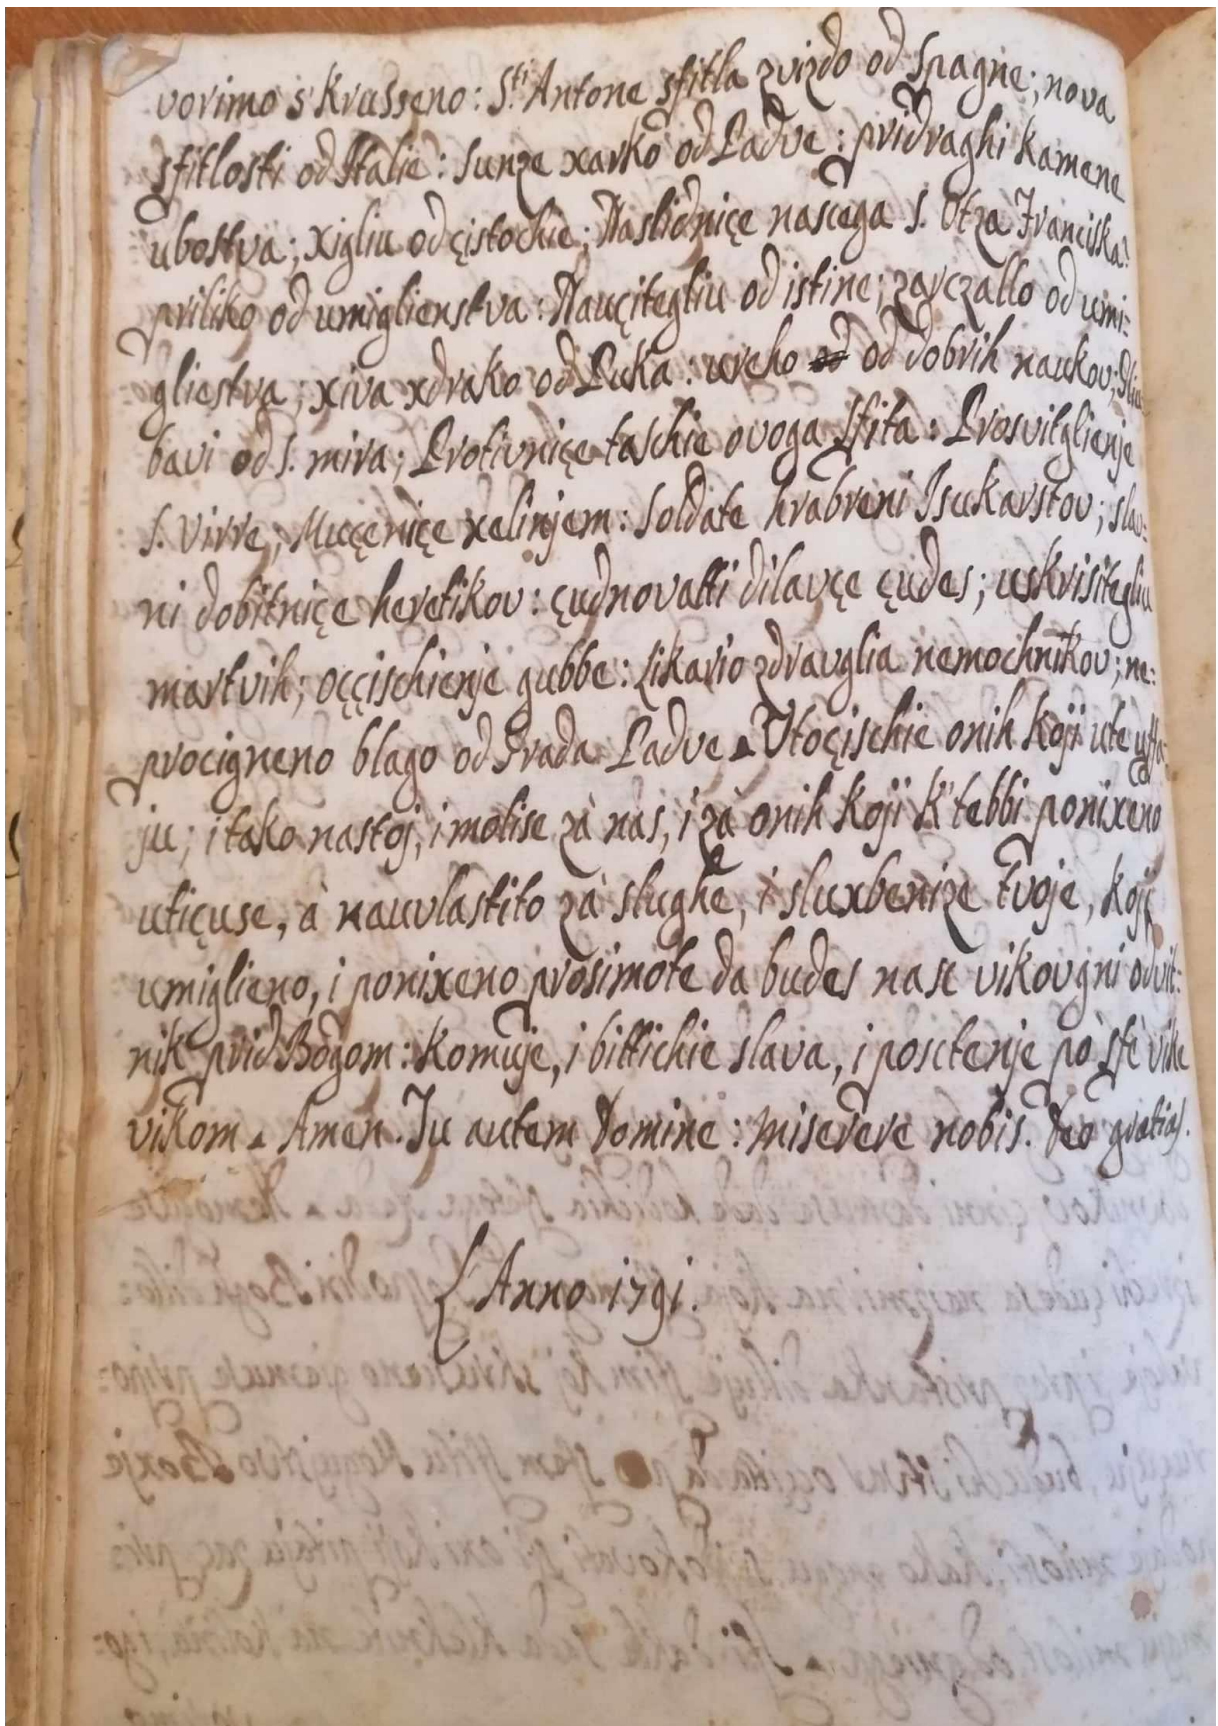 vorimo s' Krusseno: S.ti Antone sfitla zvizdo od Spagne; nova
sfitlosti od Italie: Sunze xarko od Padve: pridraghi Kamene
ubostva; xigliu od çistochie; Naslidniçe nascega S. Otza Franciska:
priliko od umiglienstva: Nauçitegliu od istine; zarczallo od umi-
gliestva; xiva xdrako od Puka: ureho od od dobrih naukov;
bavi od S. mira; Protivniçe taschie ovoga Sfita: Prosvitglienje
S. Virre; Mucçeniçe xelinjem: Soldate hrabreni Isukarstov; slav-
ni dobitniçe heretikov: çudnovatti dilavçe çudes; uskrisitegliu
martvih; oççischienje gubbe: Likario zdravglia nemochnikov; ne-
procigneno blago od Grada Padve. Utoçischie onih koji ute uffa-
ju; i tako nastoj, i molise zà nas, i zà onih koji k' tebbi ponixeno
utiçuse, à nauvlastito zà slughe, i sluxbenize tvoje, koji
umiglieno, i ponixeno prosimote da budes nasc vikovgni odvit-
nik prid Bogom: komuje, i bittichie slava, i posctenje pò sfè vike
vikom. Amen. Tu autem Domine: miserere nobis. Deo gratias.
Anno 1791.